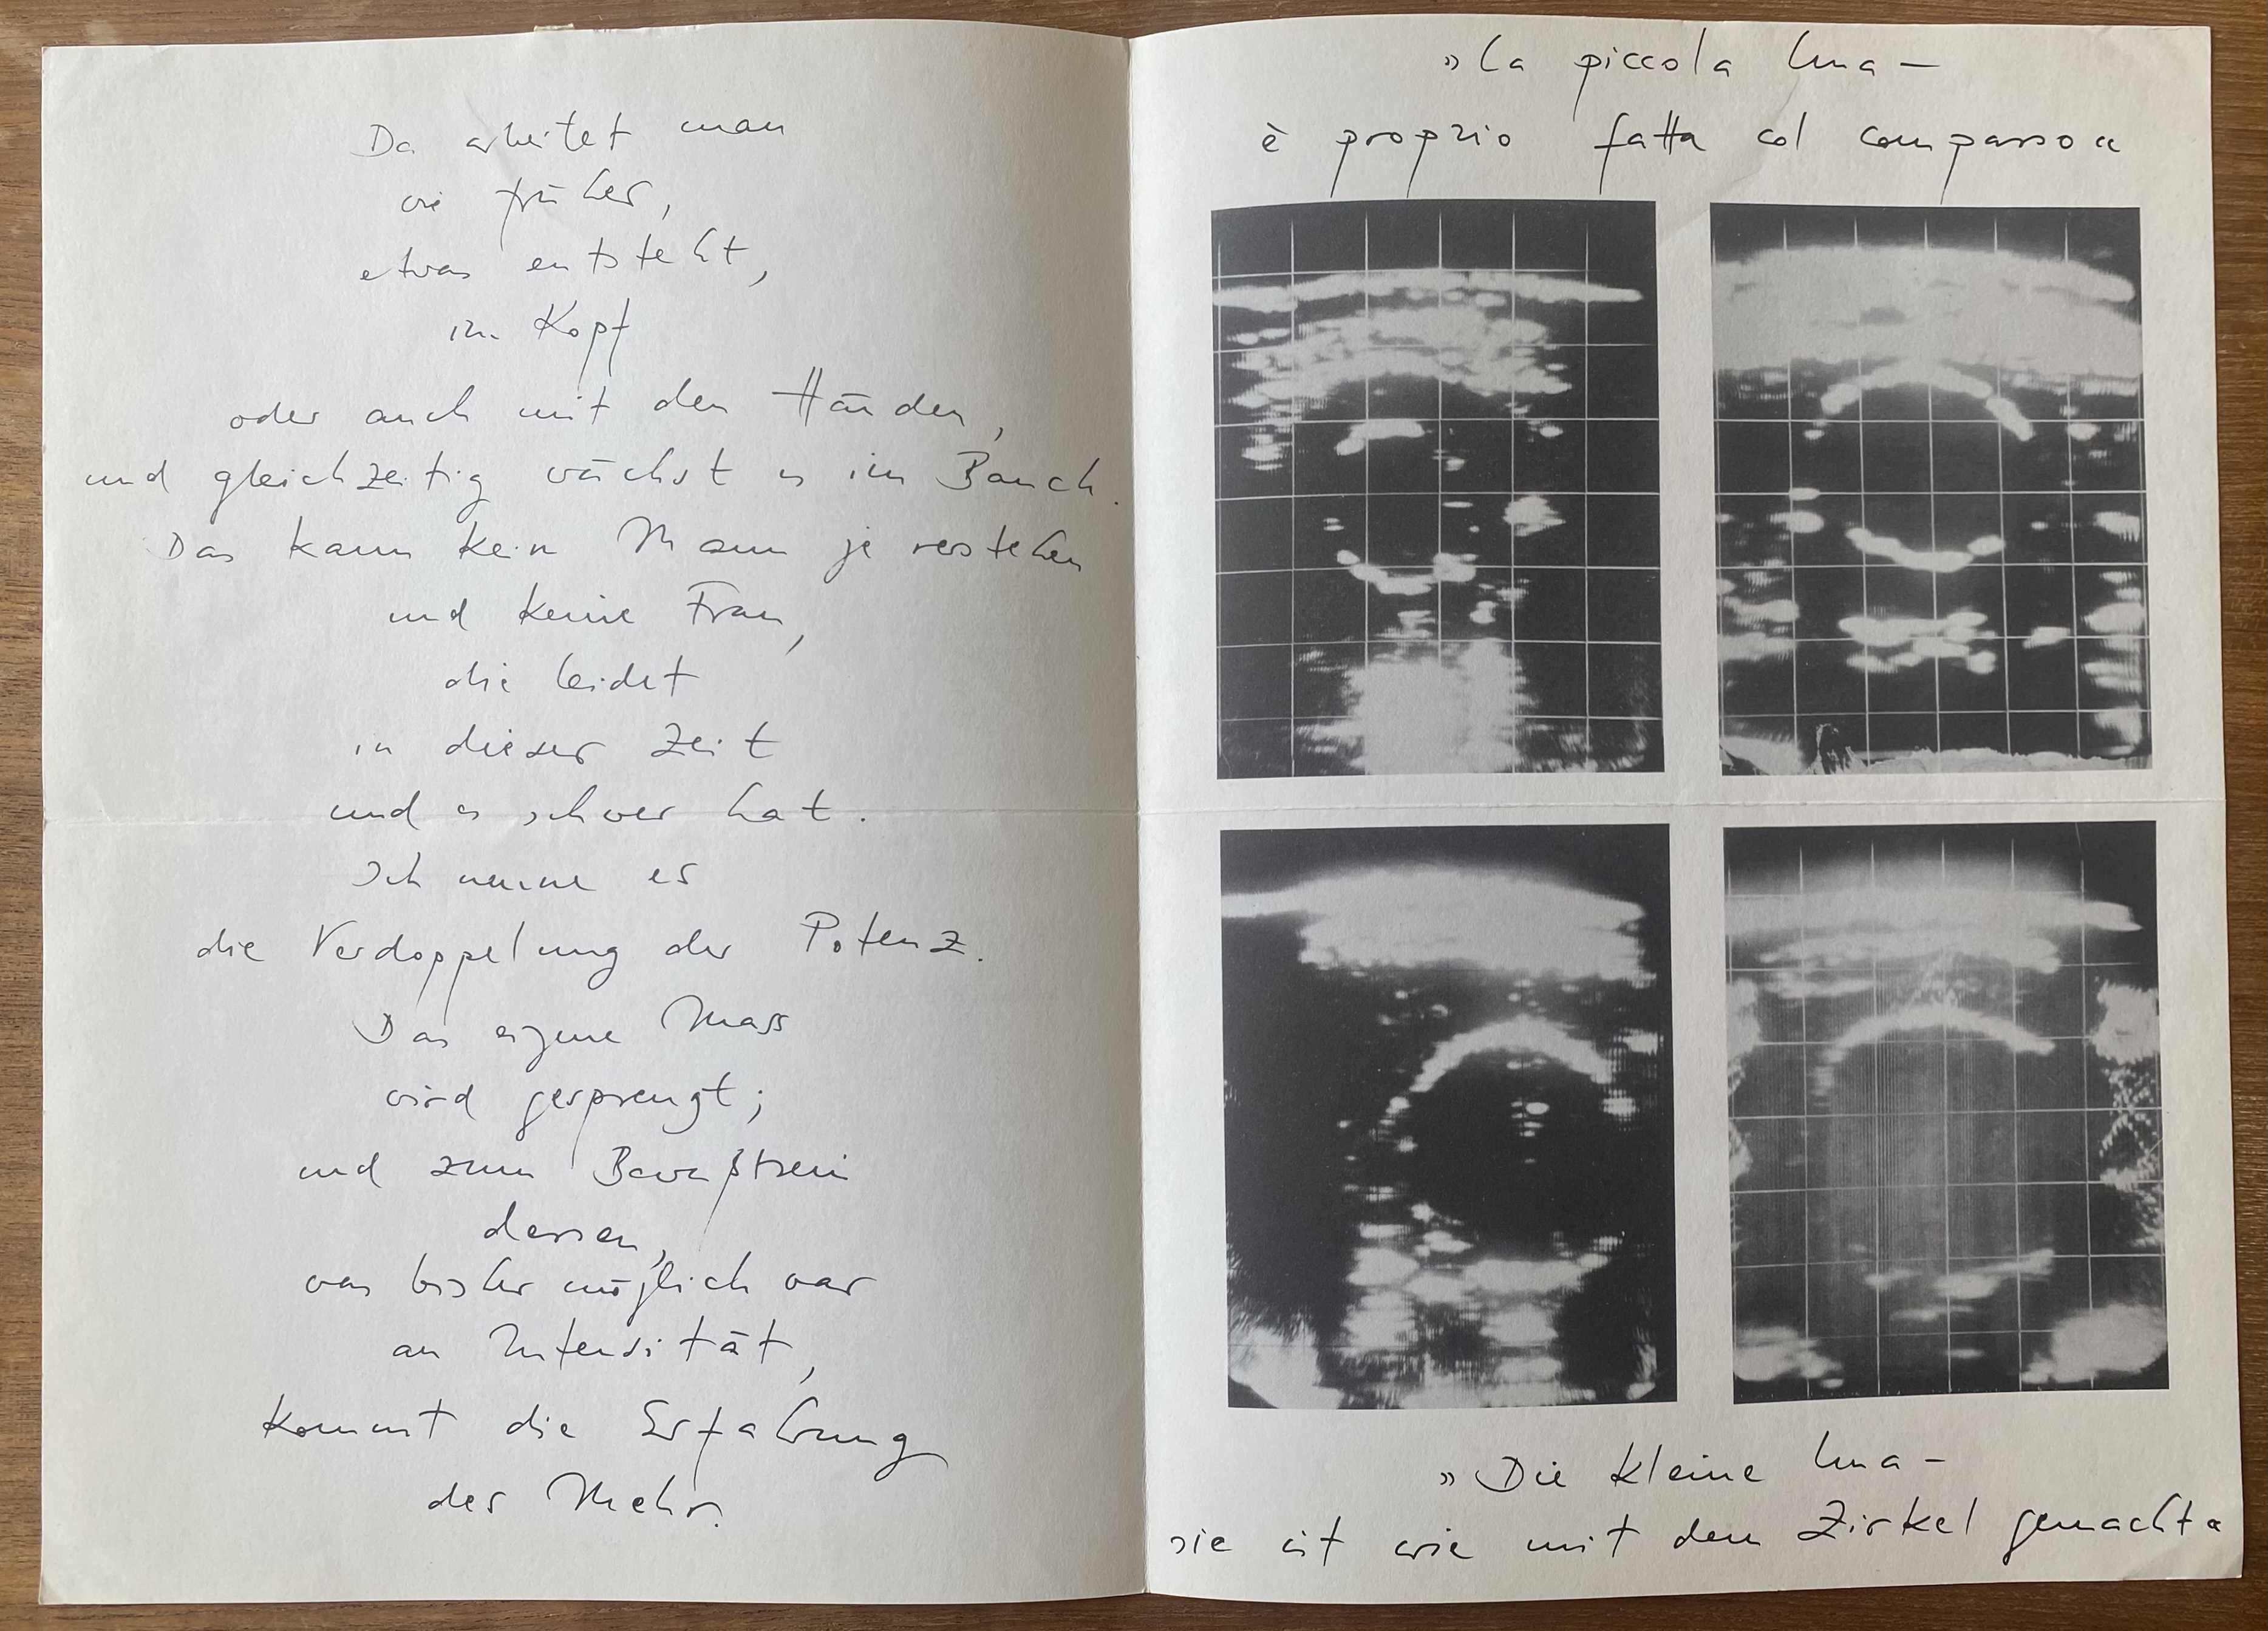 Da arbeitet man
wie früher,
etwas entsteht,
im Kopf
oder auch mit den Händen,
und gleichzeitig wächst es im Bauch.
Das kann kein Mann je verstehen
und keine Frau,
die leidet
in dieser Zeit
und es schwer hat.
Ich nenne es
die Verdoppelung der Potenz.
Das eigene Mass
wird gesprengt;
und zum Bewußtsein
dessen,
was bisher möglich war
an Intensität,
kommt die Erfahrung
des Mehr.
»La piccola Una –
è proprio fatta col compasso«
»Die kleine Una –
sie ist wie mit dem Zirkel gemacht«